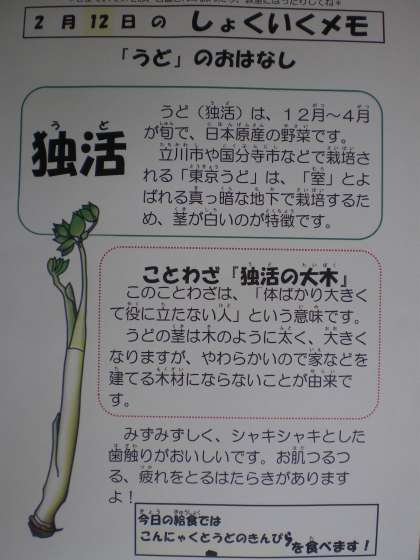 2月12日の しょくいくメモ
「うど」のおはなし
独活
うど
うど（独活）は、１２月～４月
が旬で、日本原産の野菜です。
立川市や国分寺市などで栽培さ
れる「東京うど」は、「室」とよ
ばれる真っ暗な地下で栽培するた
め、茎が白いのが特徴です。
ことわざ『独活の大木』
このことわざは、「体ばかり大きく
て役に立たない人」という意味です。
うどの茎は木のように太く、大きく
なりますが、やわらかいので家などを
建てる木材にならないことが由来で
す。
みずみずしく、シャキシャキとした
歯触りがおいしいです。お肌つるつ
る、疲れをとるはたらきがあります
よ！
今日の給食では
こんにゃくとうどのきんぴらを食べます！